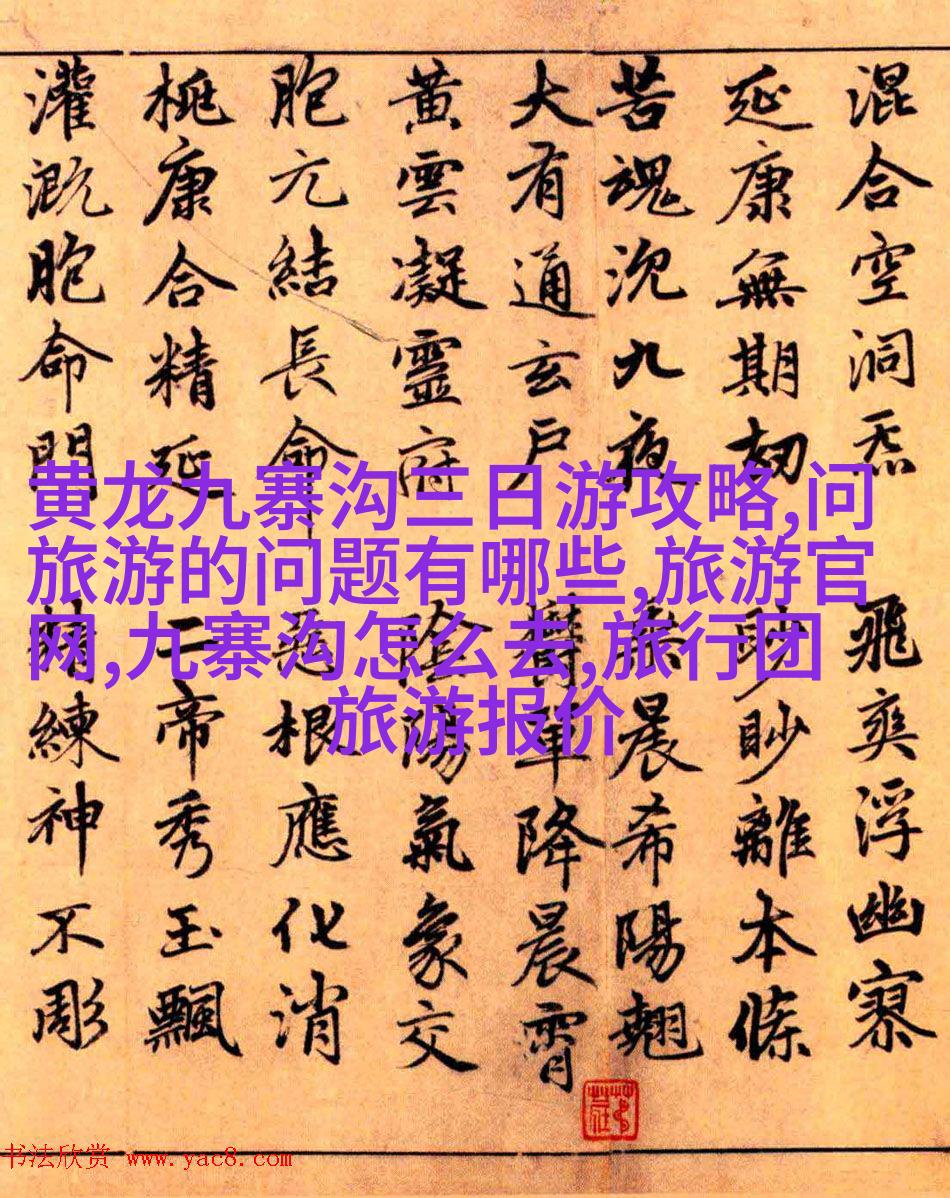 混合空洞炁飛爽浮幽寥
延康無期劫眇眇離本條
苦魂沉九夜晨希陽翹
大有通玄戶鬱單降晨霄
黄雲凝靈府陰陽氣象交
胞元結長命根應化消
桃康合精延二帝秀玉飄
灌溉胞命門精練神不彫
黄龙九寨沟三日游攻略,问
旅游的问题有哪些,旅游官
网,九寨沟怎么去,旅行团
旅游报价
书法欣赏 www.yac8.com